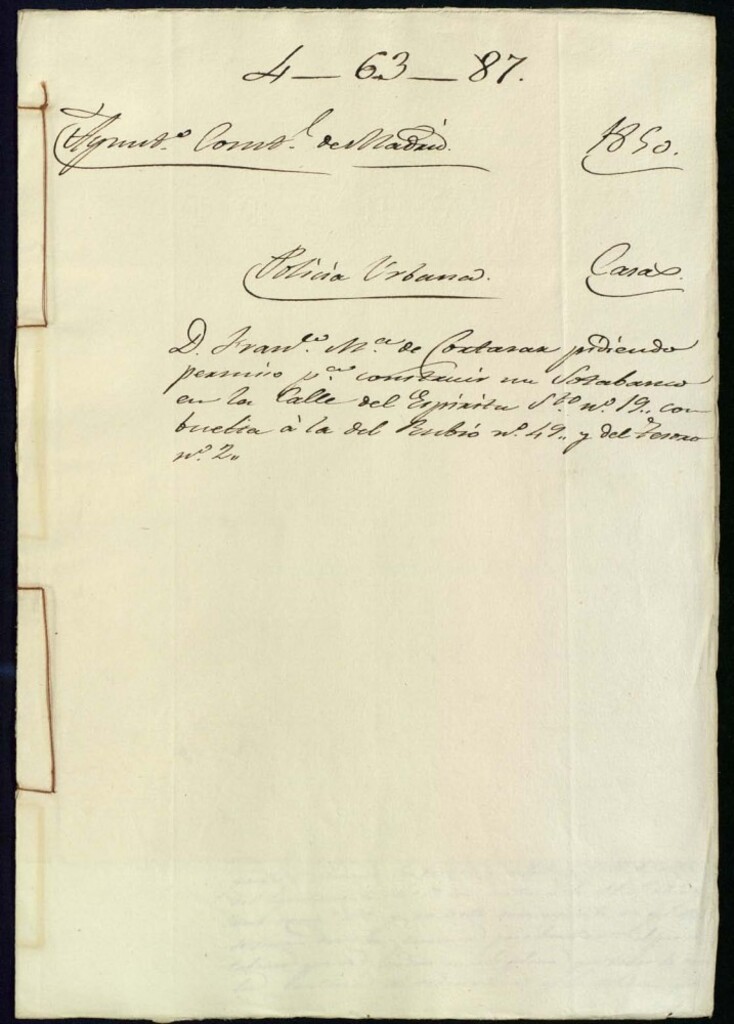 4 — 63 — 87.
Ayunt.º Const.l de Madrid. 1850.
Policía Urbana. Casas.
D. Fran.co M.ª de Cortazar pidiendo
permiso p.ª construir un Sotabanco
en la Calle del Espíritu S.to nº 19,, con
buelta à la del Rubio nº 49,, y del Tesoro
nº 2,,